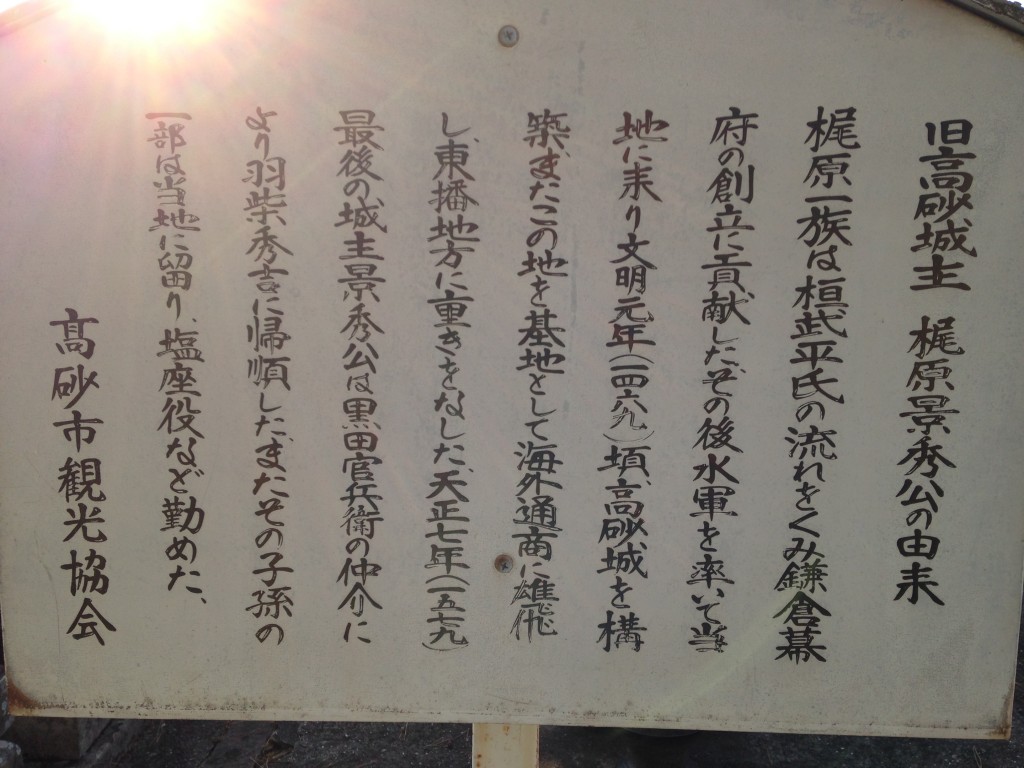 旧高砂城主 梶原景秀公の由来
梶原一族は桓武平氏の流れをくみ鎌倉幕
府の創立に貢献した、その後水軍を率いて当
地に来り文明元年(一四六九)頃、高砂城を構
築、またこの地を基地として海外通商に雄飛
し、東播地方に重きをなした、天正七年(一五七九)
最後の城主景秀公は黒田官兵衛の仲介に
より羽柴秀吉に帰順した、またその子孫の
一部は当地に留り、塩座役など勤めた、
高砂市観光協会